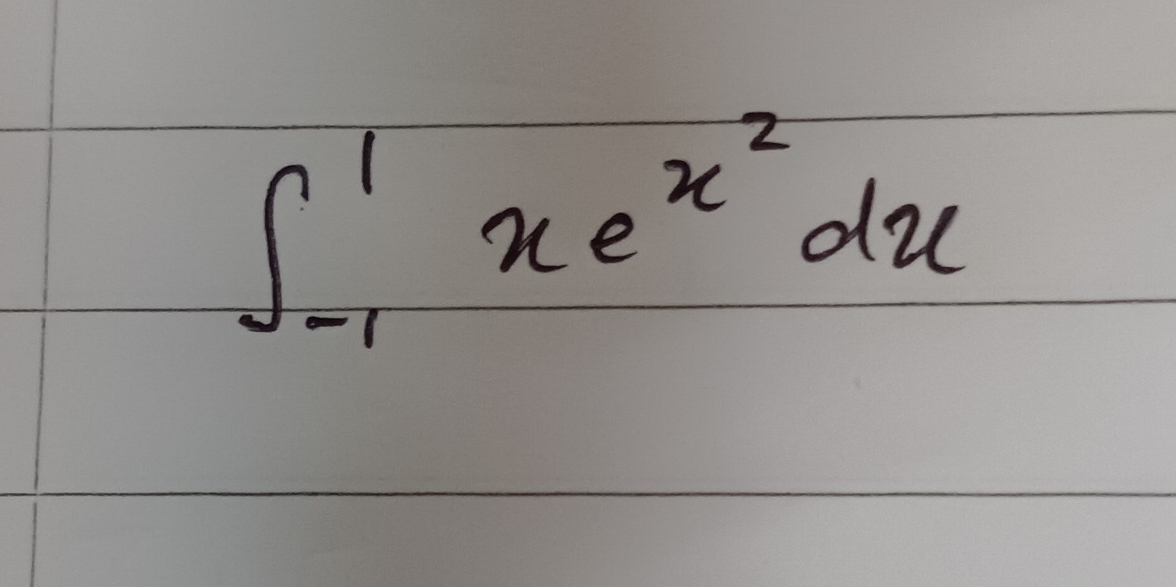 ∫₋₁¹ xe^{x²} dx